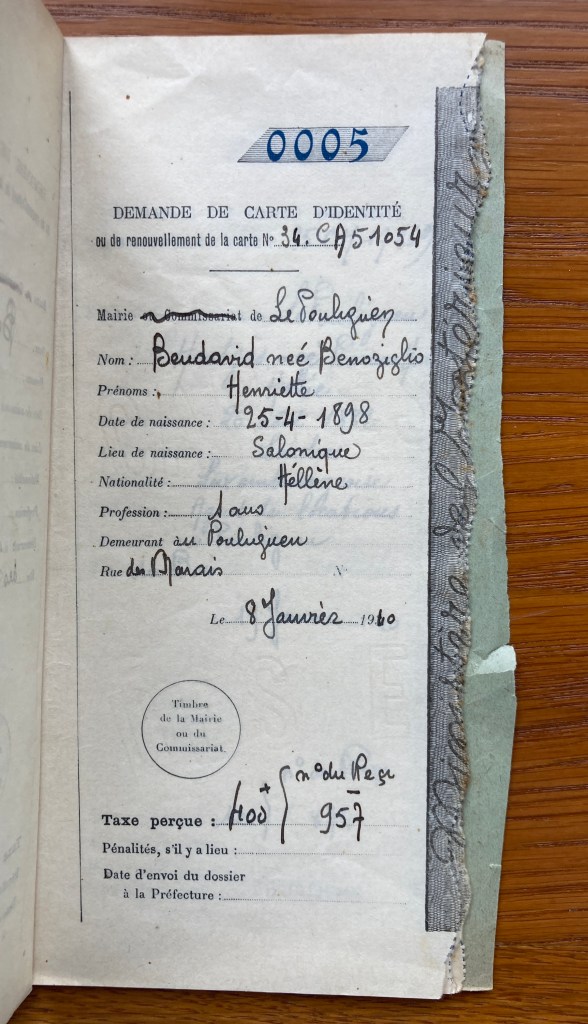 0005
DEMANDE DE CARTE D'IDENTITÉ
ou de renouvellement de la carte No 34. CA51054
Mairie ou Commissariat de Le Pouliguen
Nom : Beudavid neé Benoziglio
Prénoms : Henriette
Date de naissance : 25-4-1898
Lieu de naissance : Salonique
Nationalité : Héllène
Profession : Sans
Demeurant au Pouliguen
Rue des Marais No
Le 8 Janvier 1940
Timbre
de la Mairie
ou du
Commissariat.
Taxe perçue : 400 { no du Reçu
957
Pénalités, s'il y a lieu :
Date d'envoi du dossier
à la Préfecture :
Ministère de l'Intérieur